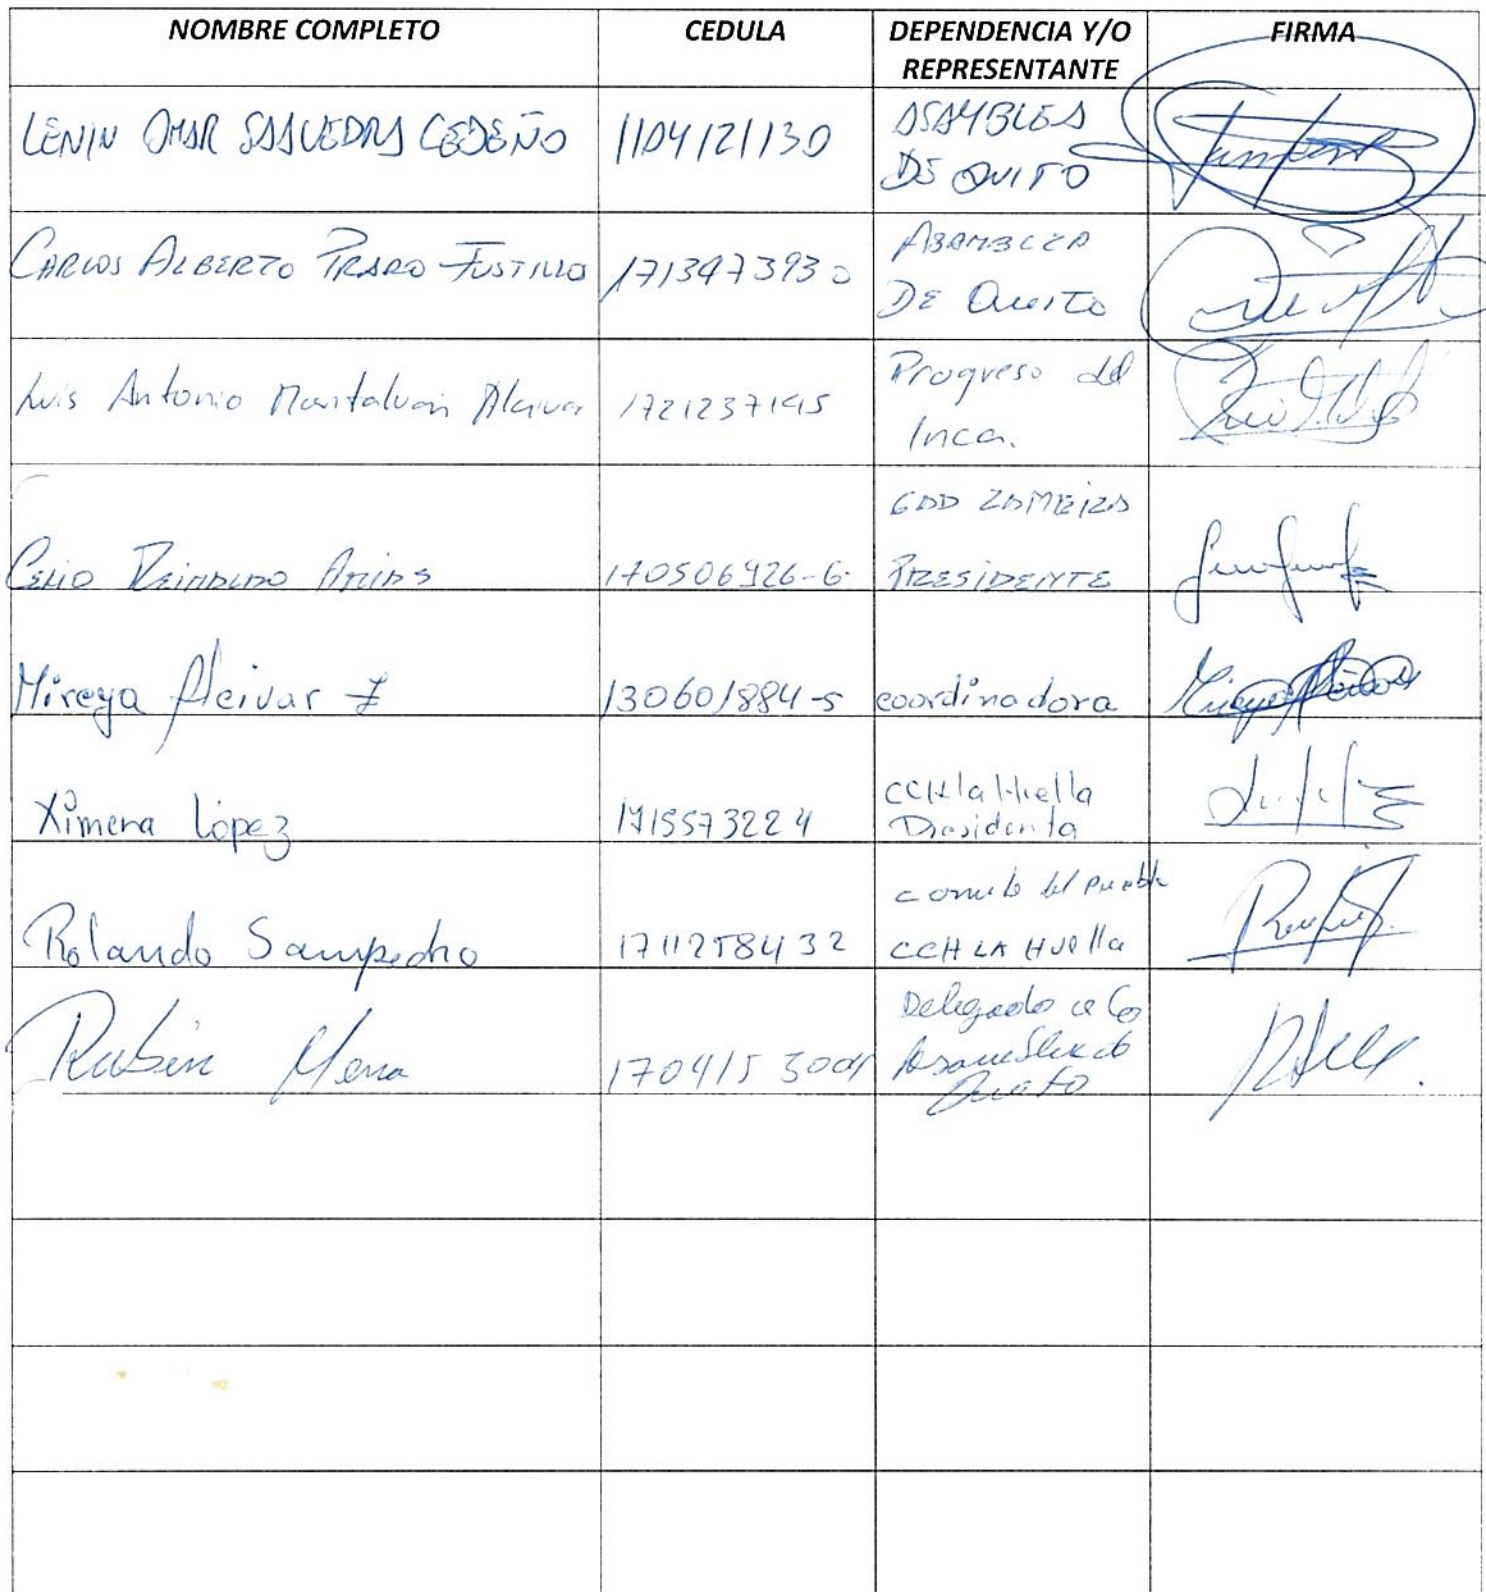 NOMBRE COMPLETO CEDULA DEPENDENCIA Y/O REPRESENTANTE FIRMA
LENIN OMAR SAAVEDRA CEDEÑO 1104121130 ASAMBLEA
DE QUITO
CARLOS ALBERTO PRADO 1713473930 ASAMBLEA
DE QUITO
Luis Antonio Montalvan 1721237145 Progreso del
Inca.
CELIO ARIAS 170506926-6. GAD ZAMBIZA
PRESIDENTE
Mireya Alcivar Z 130601884-5 coordinadora
Ximena López 1715573224 CCH la Huella
Presidenta
Rolando Sampedro 1711258432 comite del Pueblo
CCH LA HUElla
Rubén Mena Delegado a la
Asamblea de
Quito